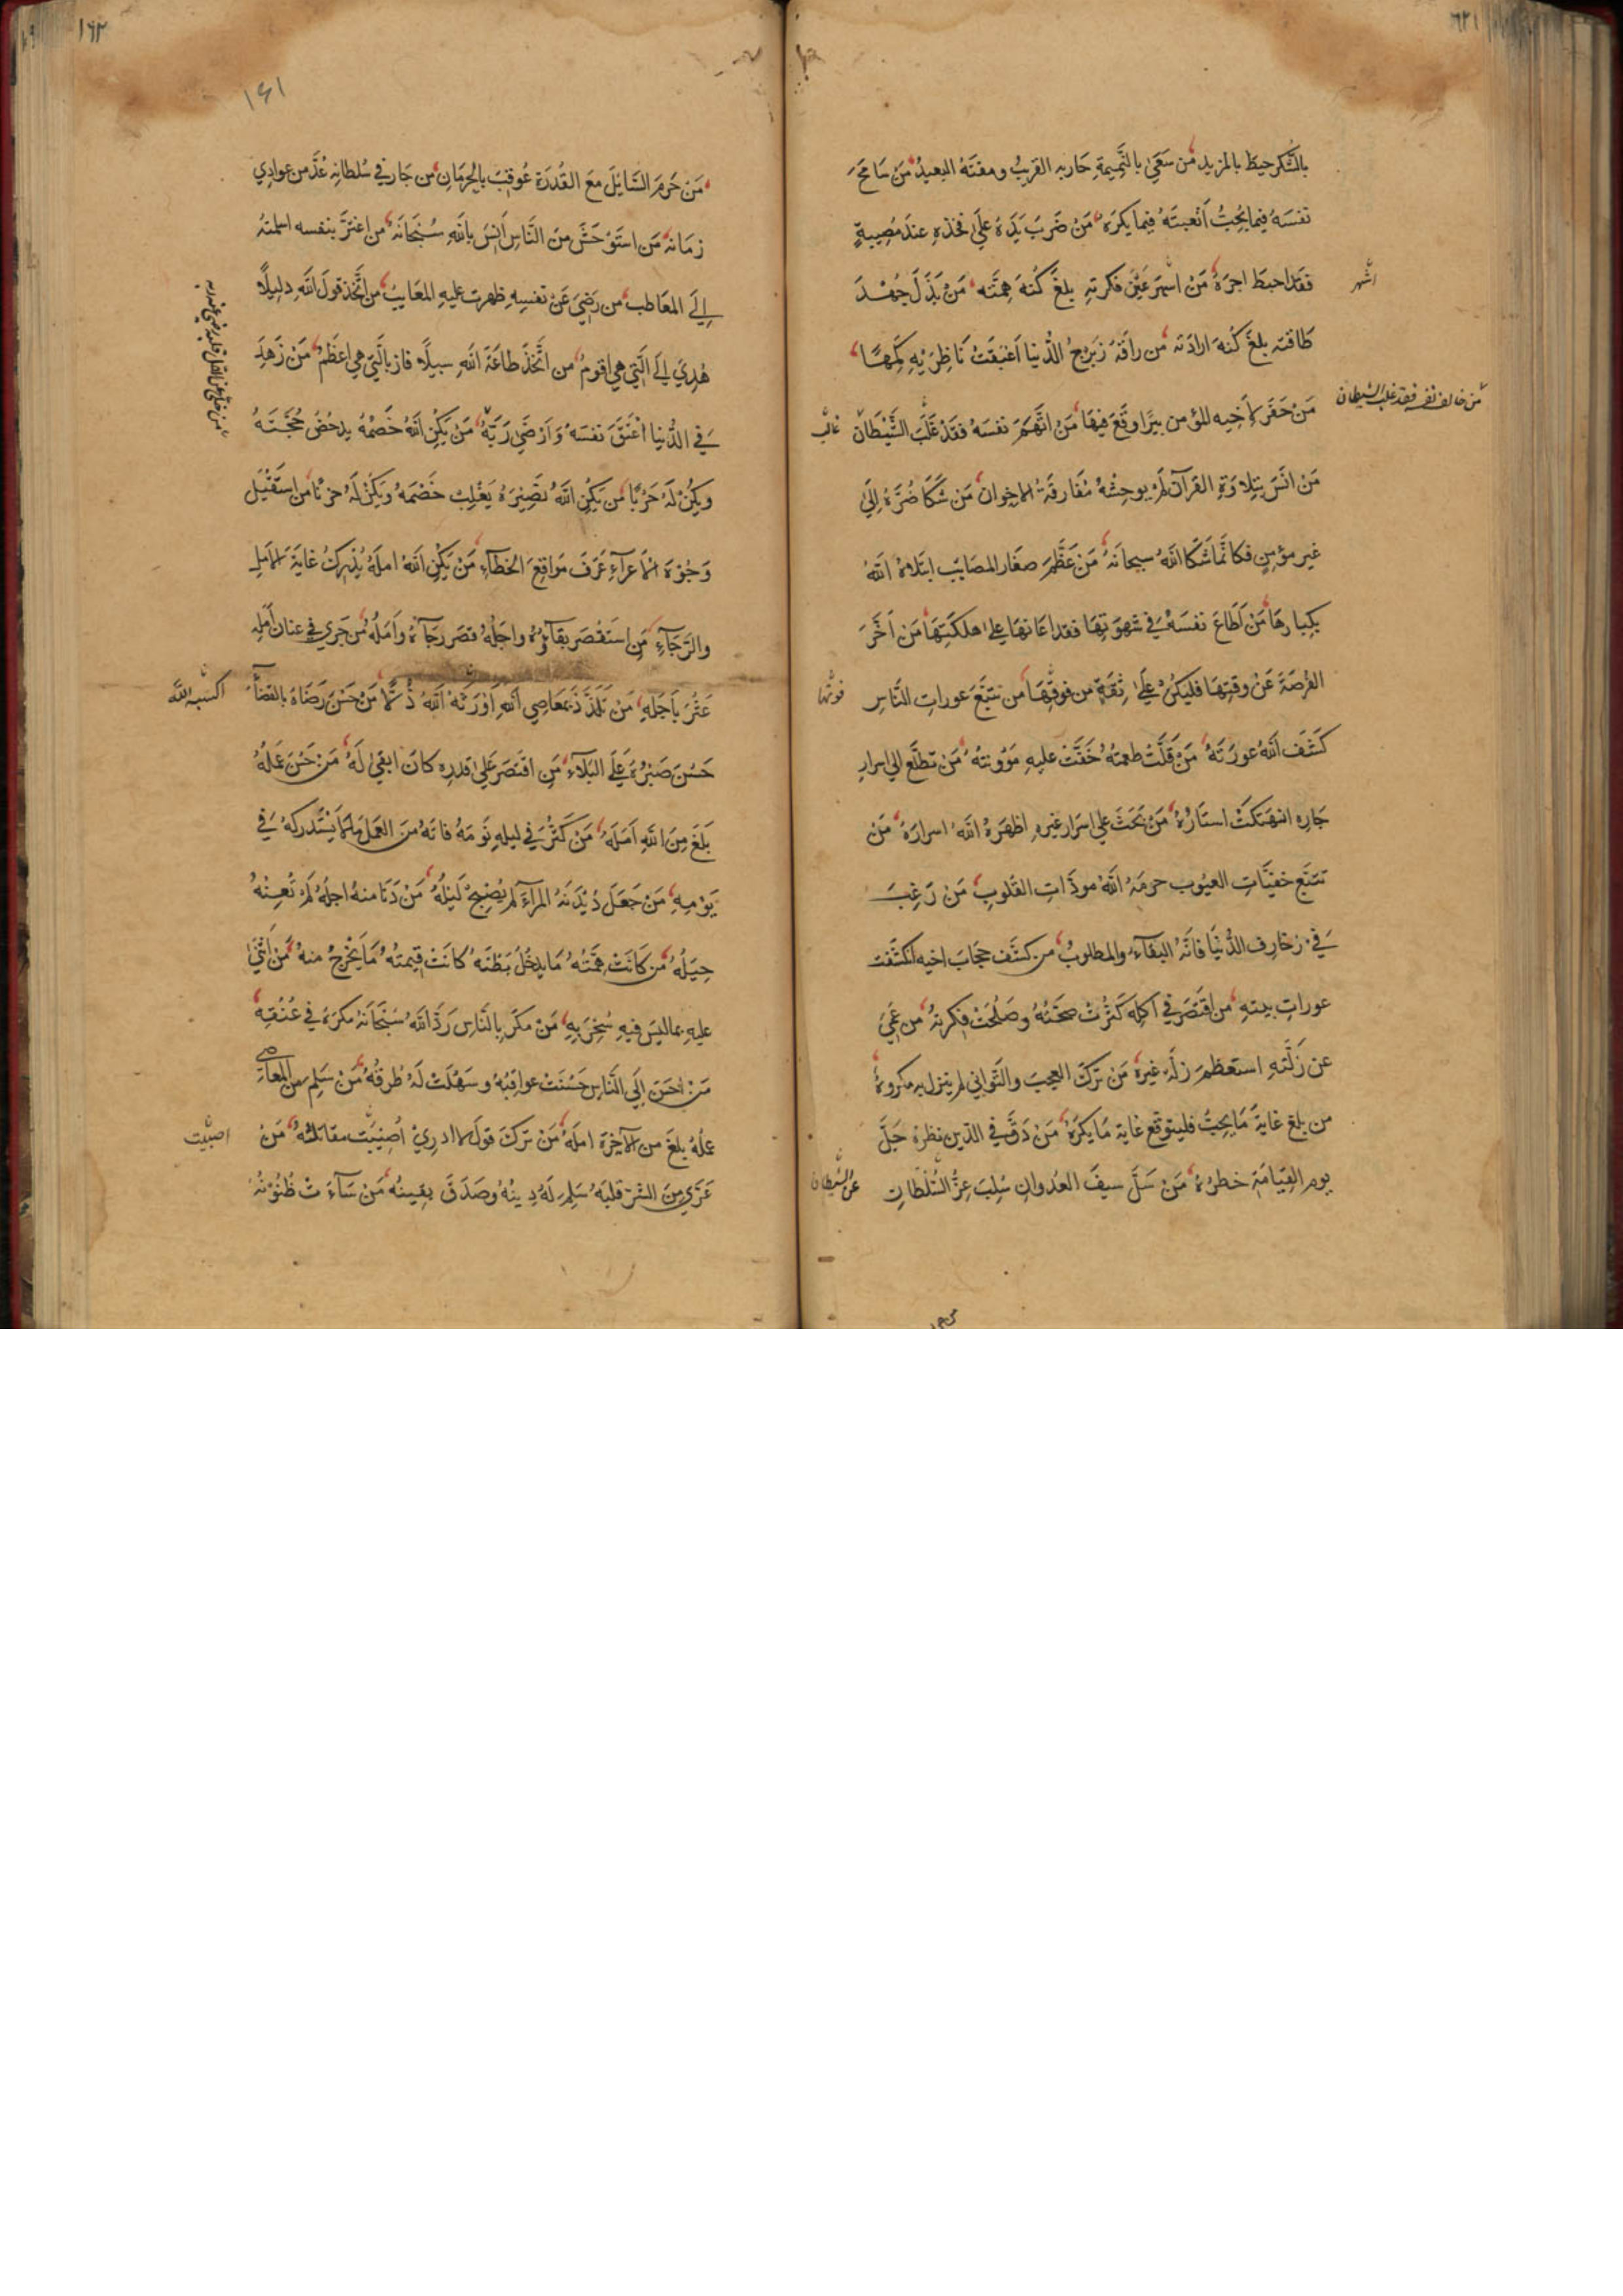 بِالشُّكْرِ حِيطَ بِالمَزِيدِ مَن سَعَى بِالنَّمِيمَةِ حَارَبَهُ القَرِيبُ ومقتَهُ البعيدُ مَن سَامَحَ
نفسَهُ فيما يُحِبُّ أَتْعَبَتْهُ فِيما يَكرَهُ مَنْ ضَرَبَ يَدَهُ عَلَى فَخِذِهِ عندَ مُصِيبةٍ
فقد احبطَ اجرَهُ مَنْ اسْهَرَ عَيْنَ فكرتِهِ بلغَ كُنهَ هِمَّتِه مَنْ بَذَلَ جُهْدَ
اشهر
طاقتِه بلغَ كُنهَ ارادَتِه من راقَهُ زِبْرِجُ الدُّنيا أَعْقَبَتْ نَاظِرَيْهِ كَمَهًا
مَنْ حَفَرَ لأخِيهِ المؤمن بِيرًا وقَعَ فيهَا مَن اتَّهَمَ نفسَهُ فقَدْ غَلَبَ الشَّيْطَانَ
من خالف نفسه فقد غلب الشيطان
غالب
مَنْ انَسَ بِتِلاوَةِ القرآنِ لَمْ يُوحِشْهُ مُفارقَةُ الاخوانِ مَن شَكَا ضُرَّهُ إِلى
غيرِ مؤمِنٍ فكانَّما شَكَا اللّهَ سبحانَهُ مَنْ عَظَّمَ صغَارَ المصَايِبِ ابتَلاهُ اللّهُ
بكِبَارِهَا مَنْ أَطَاعَ نفسَهُ فِي شَهوَتِهَا فقد اعَانهَا على هلكَتِهَا مَن أَخَّرَ
الفُرصَةَ عَنْ وقتِهَا فليكُنْ عَلَى ثِقَةٍ من فوتِهَا مَن تتبَّعَ عوراتِ النَّاسِ
فوتها
كَشَفَ اللّهُ عورَتَهُ مَنْ قَلَّتْ طعمتُهُ خَفَّتْ عليهِ مَؤُونتُهُ مَنْ تطلَّعَ الى اسرارِ
جَارِهِ انهَتكَتْ استَارُهُ مَنْ بَحَثَ على اسرَارِ غيرِهِ اظهَرَ اللّهُ اسرارَهُ مَن
تتبَّع خفيَّاتِ العيُوبِ حرمَهُ اللّهُ مودَّاتِ القلوبِ مَن رَغِبَ
فِي زخارِفِ الدُّنْيَا فاتَهُ البقآءُ والمطلوبُ من كشَف حِجَابَ اخيهِ انكشَفت
عوراتُ بيتهِ من اقتَصَرَ في اكلِهِ كَثُرَتْ صحّتُهُ وصَلُحَتْ فِكرَتُهُ من عَمِيَ
عن زَلَّتِهِ استعظمَ زلَّةَ غيرِهِ مَن تَرَكَ العجبَ والتَّوَانِي لم ينزل به مكروهٌ
من بلغَ غايةَ مَا يُحِبُّ فليتوقَّع غايةَ مَا يَكرَهُ مَنْ دَقَّ في الدّين نظرُهُ جَلَّ
يوم القِيَامَةِ خطرُهُ مَنْ سَلَّ سيفَ العُدوانِ سُلِبَ عِزُّ السُّلْطَانِ
عن الشيطان
١٦٢
١٦١
مَنْ حَرَمَ السَّايِلَ معَ القُدرَة عُوقِبَ بِالحِرمَانِ من جَارَ في سُلطانِهِ عُدَّ من عوادِي
زمَانِهِ مَن استَوْحَشَ منَ النَّاسِ أَنِسَ بِاللّهِ سُبْحَانَهُ من اغترَّ بنفسه اسلمتهُ
إِلَى المعَاطِبِ من رَضِيَ عَنْ نفسِهِ ظهرت عليهِ المعَايِبُ من اتَّخَذَ قولَ اللّهِ دليلًا
هُدِيَ إلى الَّتي هي اقومُ من اتَّخَذَ طاعَةَ اللّهِ سبيلًا فازَ بالَّتِي هي اعظَمُ مَنْ زَهِدَ
في الدُّنيا أعْتَقَ نفسَهُ وَأَرْضَى رَبَّهُ مَنْ يَكُنِ اللّهُ خَصْمُهُ يدحضُ حُجَّتَهُ
ويكُنْ لَهُ حَرْبًا من يَكُنِ اللّهُ نَصِيرَهُ يَغْلِبْ خَصْمَهُ ويكُنْ لَهُ حِزبًا من استَقْبَلَ
وجُوهَ الآرآءِ عَرَفَ مَواقِعَ الخطآءِ مَنْ يَكُنِ اللّهُ املَهُ يُدْرِكْ غايَةَ الأمَلِ
والرَّجَاءِ مَن استَقْصَرَ بقاؤُهُ واجلُهُ قصَرَ رَجآءُهُ وأمَلُهُ من جَرى في عنانِ أَمَلِهِ
عَثَرَ بِأَجَلِهِ مَن تَلَذَّذَ بِمعَاصِي اللّهِ أَوْرَثَهُ اللّهُ ذُلًّا مَنْ حَسُنَ رِضَاهُ بالقضآءِ
اكسبه اللّه
حَسُنَ صَبْرُهُ عَلَى البَلآءِ مَنِ اقتصَرَ عَلَى قدرِهِ كانَ ابقى لَهُ مَنْ حَسُنَ عَمَلُهُ
بَلَغَ مِنَ اللّهِ أمَلَهُ مَنْ كَثُرَ فِي ليلِهِ نَومُهُ فاتَهُ منَ العمَلِ مَا لَا يَسْتَدرِكُهُ في
يَوْمِهِ مَنْ جَعَلَ دَيْدَنَهُ المِرآءَ لَم يُصْبِحْ لَيْلُهُ مَنْ دَنَا منهُ اجلُهُ لَمْ تُعِنْهُ
حِيَلُهُ مَن كَانَتْ هِمَّتُهُ مَا يدخُلُ بَطْنَهُ كانَتْ قِيمَتُهُ مَا يَخْرُجُ منهُ مَن أَثْنَى
عليهِ بماليسَ فيهِ سُخِرَ بِهِ مَنْ مكَرَ بِالنَّاسِ رَدَّ اللّهُ سُبْحَانَهُ مكرَهُ في عُنُقِهِ
مَنْ احسَنَ إِلَى النَّاسِ حَسُنَتْ عواقبُهُ وسَهُلَتْ لَهُ طُرقُهُ مَنْ سَلِمَ من المعاصي
عملُهُ بلغَ من الآخِرَةِ املَهُ مَنْ تركَ قولَ لا ادرِي أُصِيبَت مقاتلُهُ مَنْ
اصيبت
عَرِيَ مِنَ الشَّرِّ قلبُهُ سَلِمَ لَهُ دِينُهُ وصَدَقَ يقينُهُ مَنْ سَآءَتْ ظُنُونُهُ